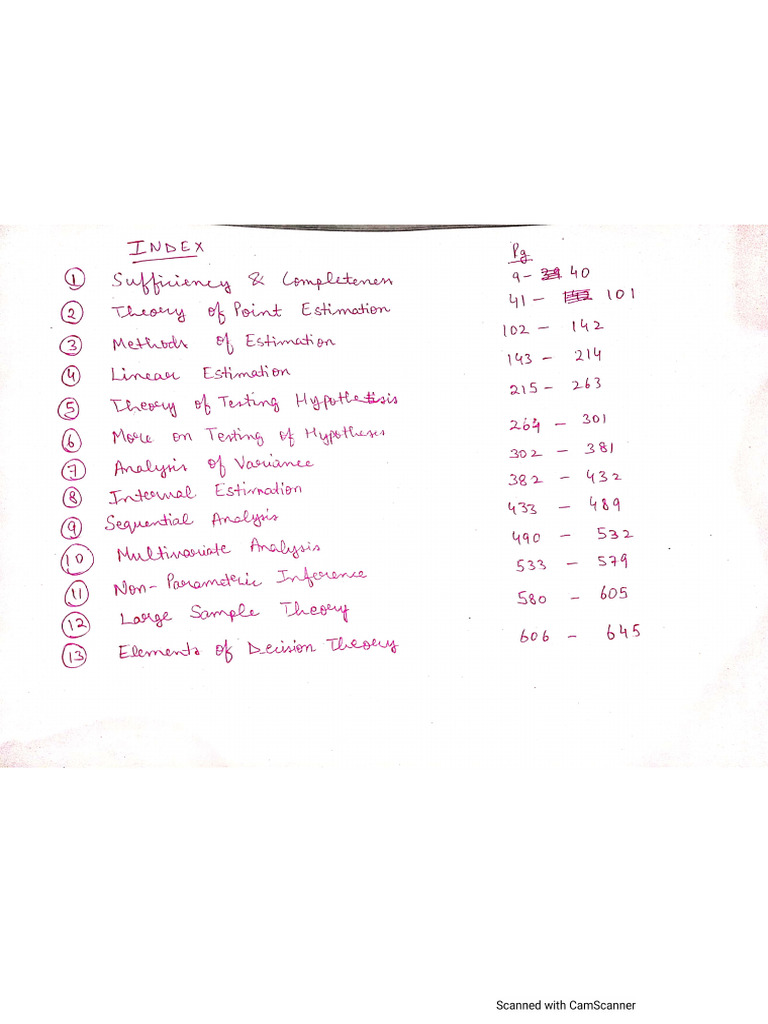 INDEX Pg
1 Sufficiency & Completeness 9 - 40
2 Theory of Point Estimation 41 - 101
3 Methods of Estimation 102 - 142
4 Linear Estimation 143 - 214
5 Theory of Testing Hypothesis 215 - 263
6 More on Testing of Hypotheses 264 - 301
7 Analysis of Variance 302 - 381
8 Interval Estimation 382 - 432
9 Sequential Analysis 433 - 489
10 Multivariate Analysis 490 - 532
11 Non-Parametric Inference 533 - 579
12 Large Sample Theory 580 - 605
13 Elements of Decision Theory 606 - 645
Scanned with CamScanner